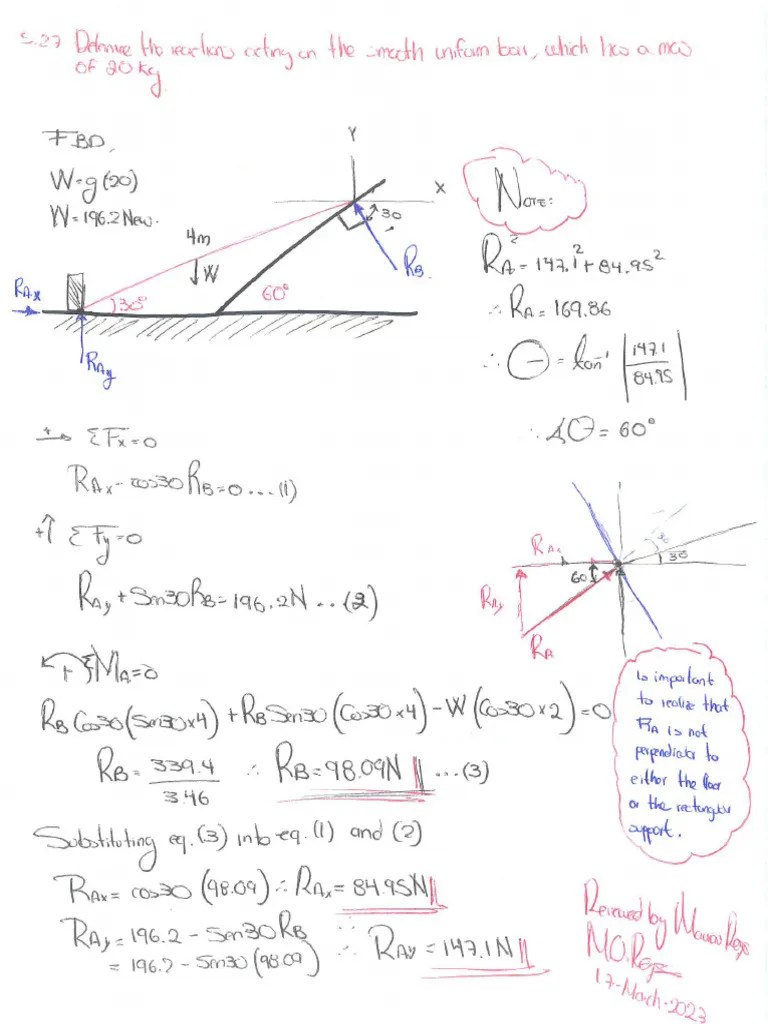 5.27 Determine the reactions acting on the smooth uniform bar, which has a mass
of 20 kg
FBD.
W=g(20)
W=196.2 New.
Y
X
30
4m
W
RB
RAx
30°
60°
RAy
NOTE:
RA²=147.1²+84.95²
∴ RA=169.86
∴ θ = tan⁻¹ |147.1/84.95|
∴ ∡θ = 60°
ΣFx=0
RAx - cos30RB=0 ...(1)
+↑ ΣFy=0
RAy + Sen30RB=196.2N ...(2)
+ ΣMA=0
RB Cos30(Sen30x4) + RB Sen30(Cos30x4) - W(Cos30x2)=0
RB= 339.4/3.46 ∴ RB=98.09N ...(3)
30
30
60
RAx
RAy
RA
Is important
to realize that
RA is not
perpendicular to
either the floor
or the rectangular
support.
Substituting eq.(3) into eq.(1) and (2)
RAx= cos30 (98.09) ∴ RAx= 84.95N
RAy=196.2 - Sen30 RB
= 196.2 - Sen30(98.09)
∴ RAy = 147.1N
Reviewed by
17-March-2023